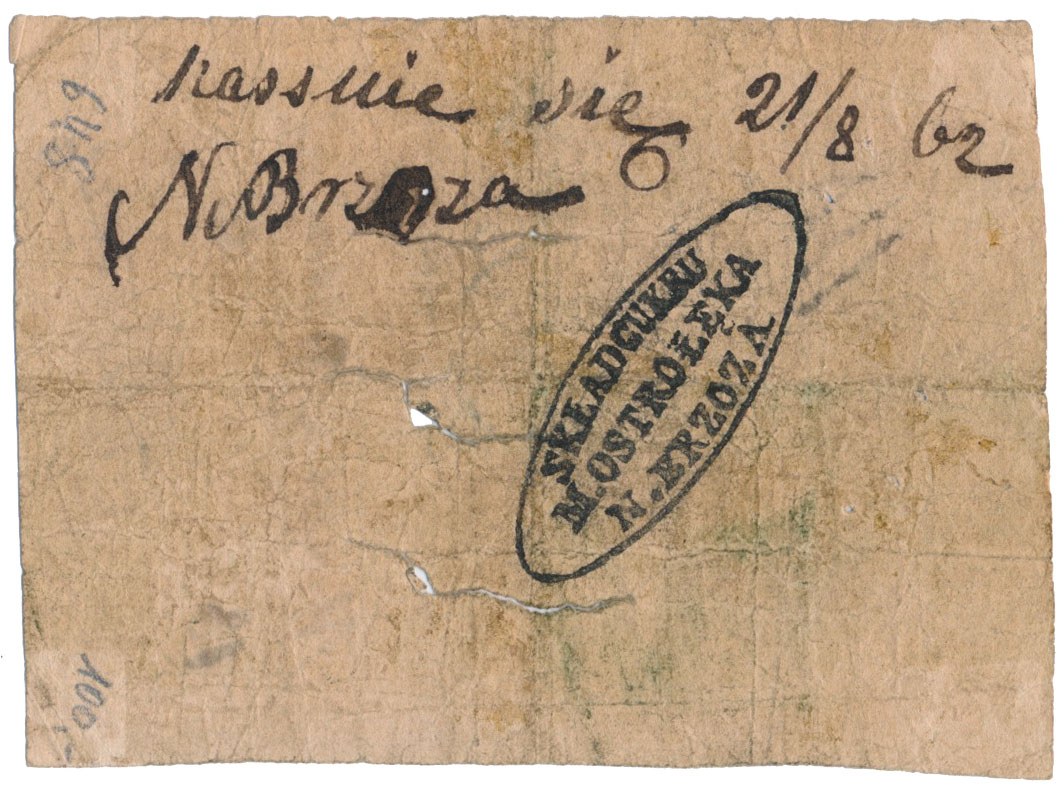 kassuie się 21/8 62
N. Brzoza
SKŁAD CUKRU
M. OSTROŁĘKA
N. BRZOZA
645
100,-